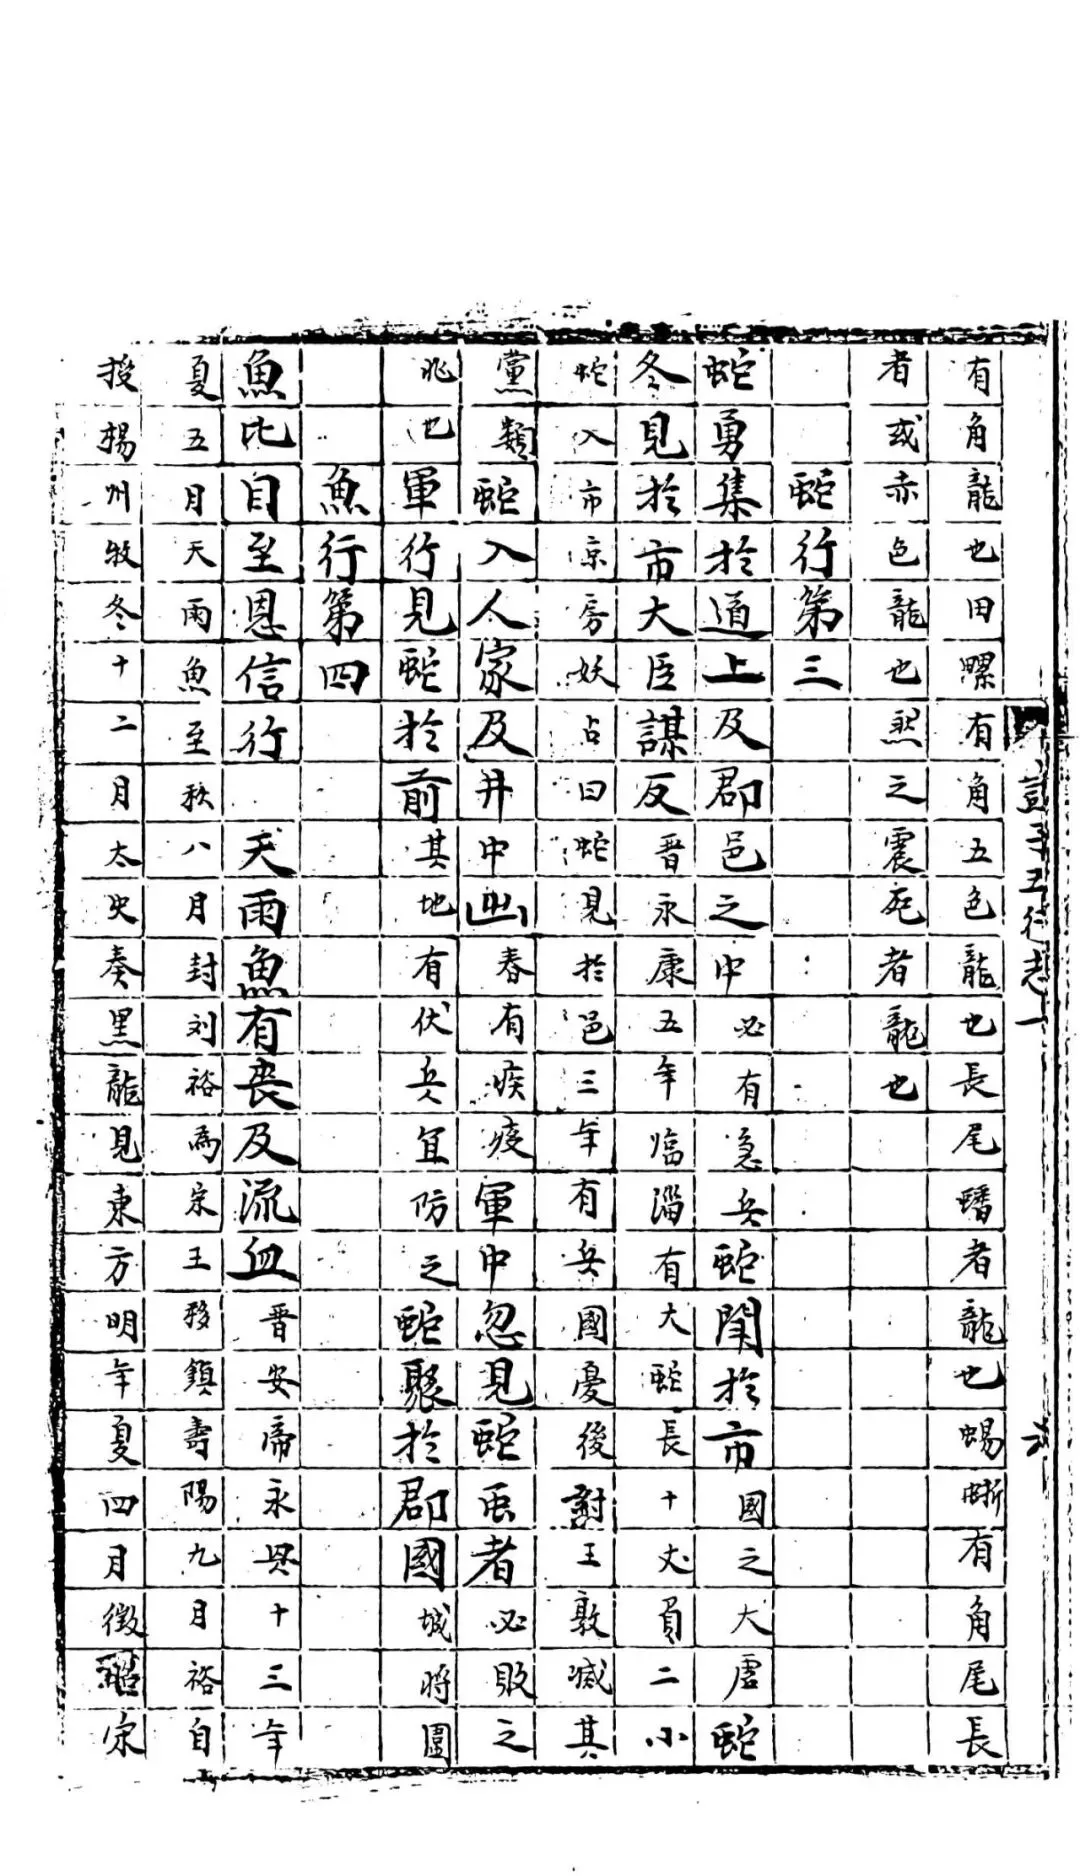 豈子五行志一 六
有角龍也田騾有角五色龍也長尾蟠者龍也蜴蜥有角尾長
者或赤色龍也煞之震死者龍也
蛇行第三
蛇勇集於道上及郡邑之中必有急兵蛇鬥於市國之大唐蛇
冬見於市大臣謀反晉永康五年臨淄有大蛇長十丈負二小
蛇入市京房妖占曰蛇見於邑三年有兵國憂後討王敦滅其
黨類蛇入人家及井中出春有疾疫軍中忽見蛇画者必敗之
兆也軍行見蛇於前其地有伏兵宜防之蛇聚於郡國城將圍
魚行第四
魚比自至恩信行 天雨魚有喪及流血晋安帝永興十三年
夏五月天雨魚至秋八月封刘裕為宋王移鎮壽陽九月裕自
授揚州牧冬十二月太史奏黑龍見東方明年夏四月徵詔宋